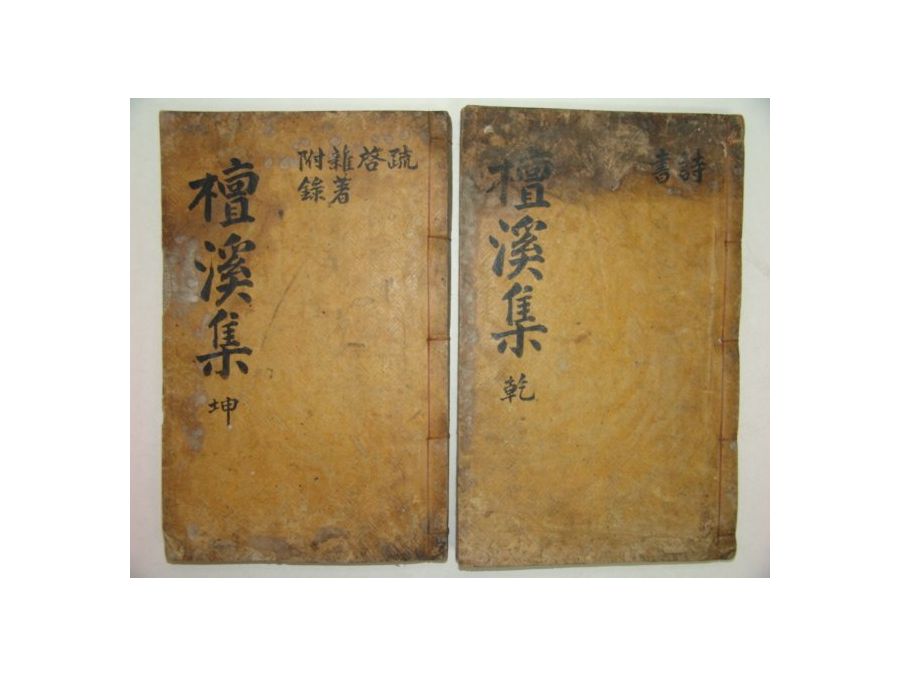 詩
書
檀溪集 乾
疏
啓
雜著
附錄
檀溪集 坤